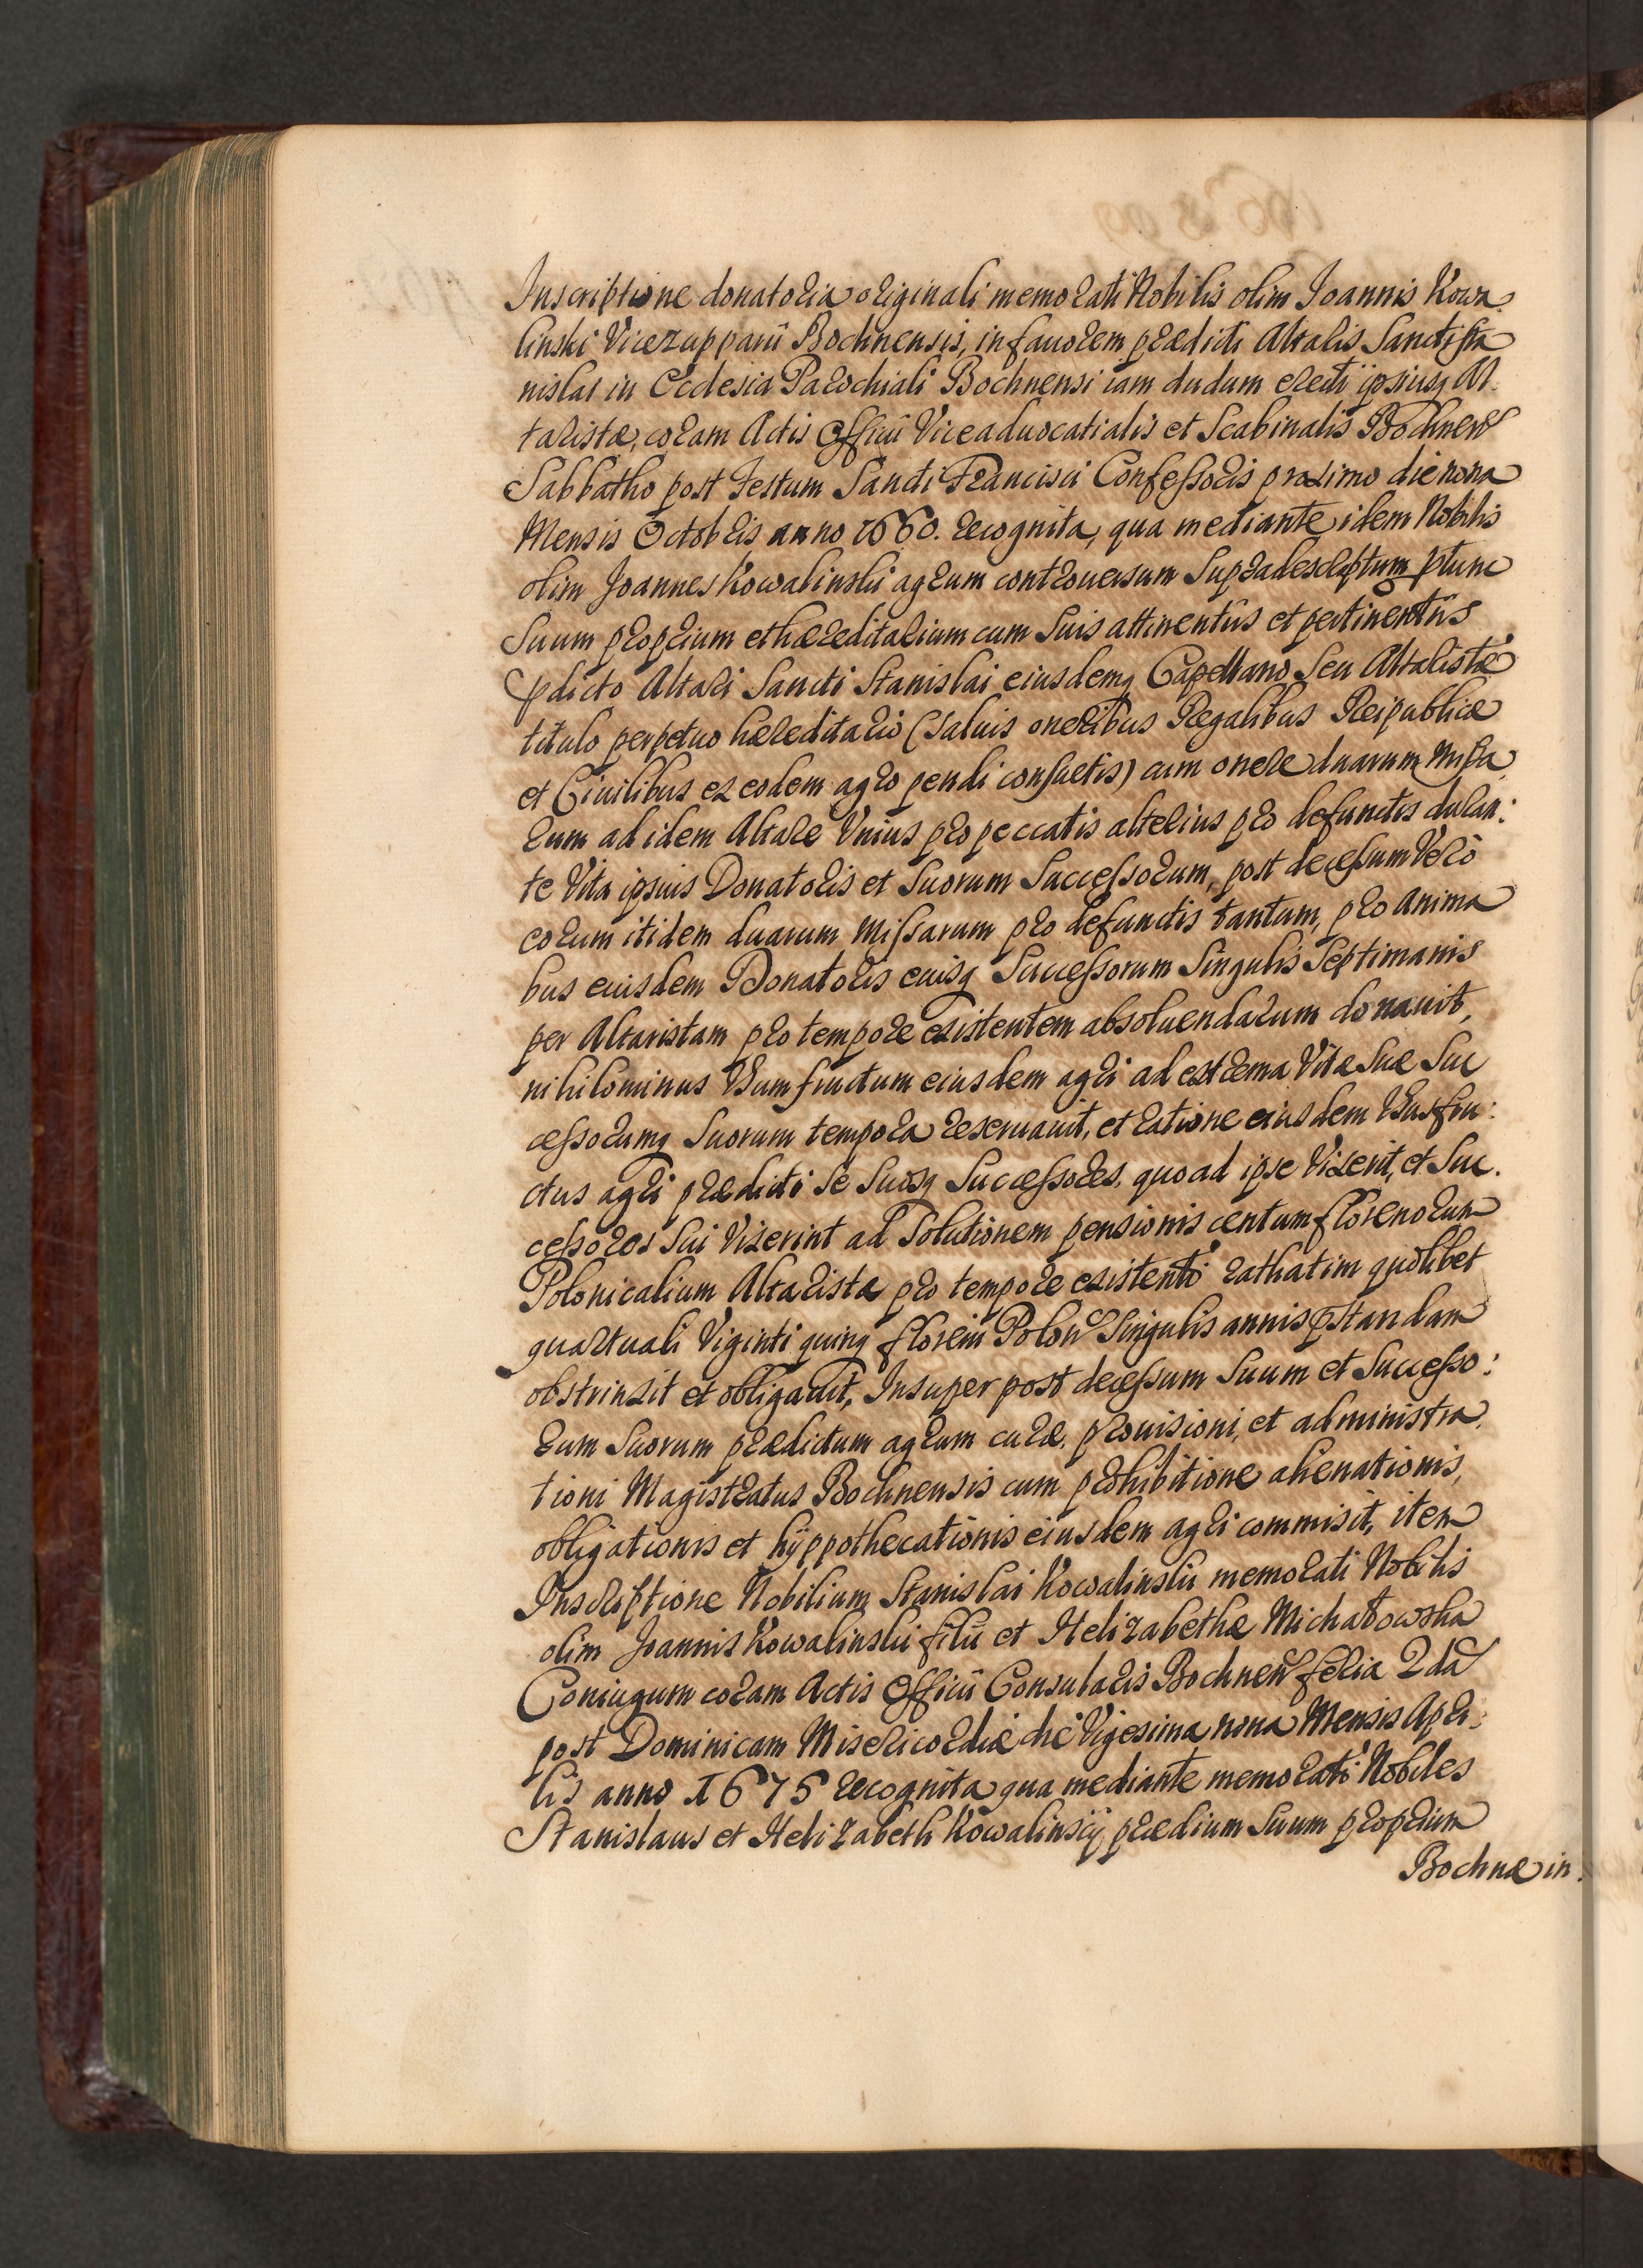 Inscriptione donatoria originali memorati Nobilis olim Joannis Kowa
linski Vicezupparii Bochnensis, in fauorem prædicti Altaris Sancti Sta
nislai in Ecclesia Parochiali Bochnensi iam dudum erecti ipsiusq Al
taristæ, coram Actis Officii Viceaduocatialis et Scabinalis Bochnen
Sabbatho post Festum Sancti Francisci Confessoris proximo die nona
Mensis Octobris anno 1660. recognita, qua mediante idem Nobilis
olim Joannes Kowalinski agrum controuersum Supradescriptum ptunc
Suum proprium et hæreditarium cum Suis attinentiis et pertinentiis
pdicto Altari Sancti Stanislai eiusdemq Capellano Seu Altaristæ
titulo perpetuo hæreditario (saluis oneribus Regalibus Reipublicæ
et Ciuilibus ex eodem agro pendi consuetis) cum onere duarum Missa
rum ad idem Altare Vnius pro peccatis alterius pro defunctis duran:
te Vita ipsius Donatoris et Suorum Successorum, post decessum Vero
eorum itidem duarum Missarum pro defunctis tantum, pro Anima
bus eiusdem Donatoris euisq Successorum Singulis Septimanis
per Altaristam pro tempore existentem absoluendarum donauit,
nihilominus Vsumfructum eiusdem agri ad extrema Vitæ Suæ Suc
cessorumq Suorum tempora reseruauit, et ratione eiusdem Vsusfru:
ctus agri prædicti Se Suosq Successores, quoad ipse Vixerit, et Suc.
cessores Sui Vixerint ad Solutionem pensionis centum florenorum
Polonicalium Altaristæ pro tempore existenti rathatim quolibet
quartuali Viginti quinq floreni Polon Singulis annis pstandam
obstrinxit et obligauit, Insuper post decessum Suum et Successo:
rum Suorum prædictum agrum curæ, prouisioni, et administra
tioni Magistratus Bochnensis cum prohibitione alienationis,
obligationis et hÿppothecationis eiusdem agri commisit, item
Inscriptione Nobilium Stanislai Kowalinski memorati Nobilis
olim Joannis Kowalinski filii et Helizabethæ Michałowska
Coniugum coram Actis Officii Consularis Bochnen feria 2da
post Dominicam Misericordiæ die Vigesima nona Mensis Apri:
lis anno 1675 recognita qua mediante memorati Nobiles
Stanislaus et Helizabeth Kowalinscÿ prædium Suum proprium
Bochnæ in